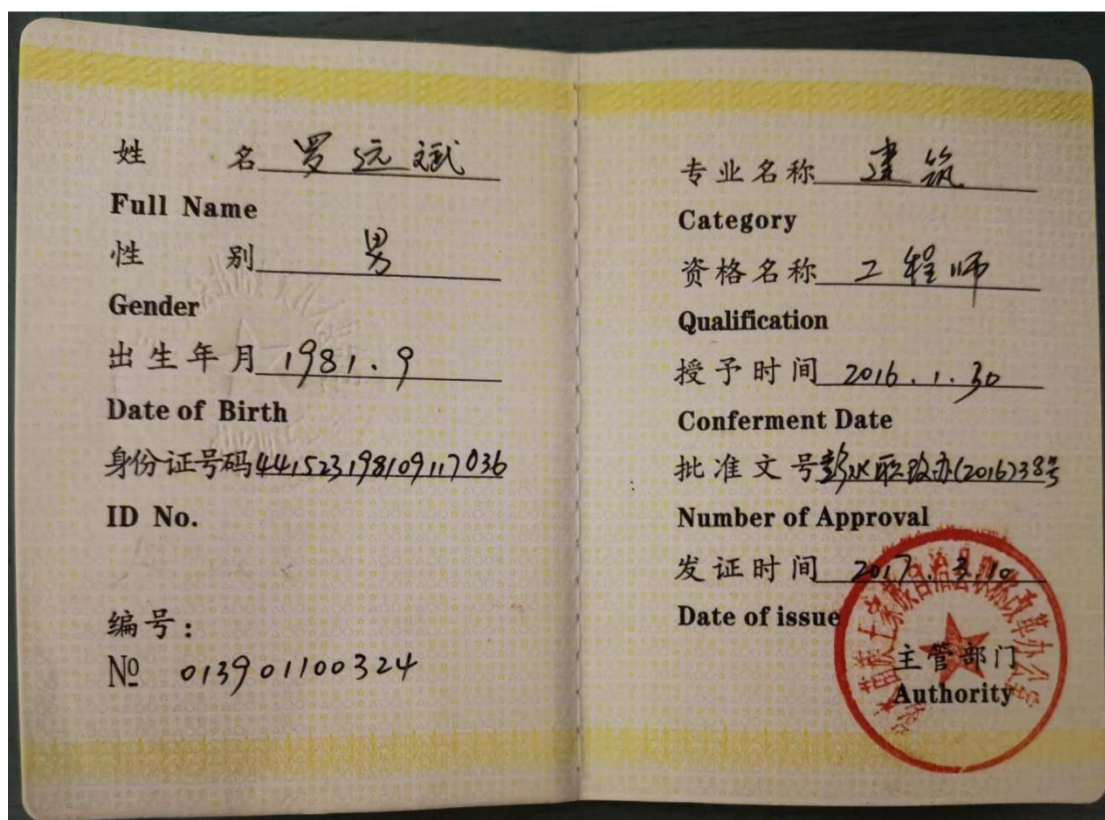 姓 名 罗远斌
Full Name
性 别 男
Gender
出生年月 1981.9
Date of Birth
身份证号码 441523198109117036
ID No.
编号:
№ 013901100324
专业名称 建筑
Category
资格名称 工程师
Qualification
授予时间 2016.1.30
Conferment Date
批准文号 彭水职改办(2016)38号
Number of Approval
发证时间 2017.3.10
Date of issue
彭水苗族土家族自治县职称改革办公室
主管部门
Authority